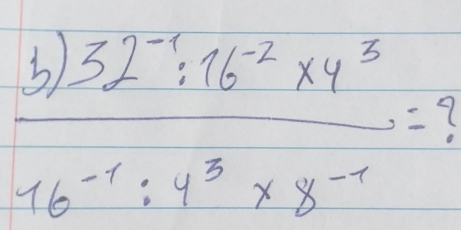 b) 32⁻¹ : 16⁻² × 4³
= ?
16⁻¹ : 4³ × 8⁻¹